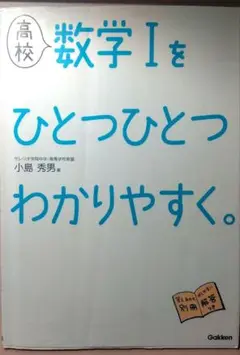 高校
数学Iを
ひとつひとつ
わかりやすく。
小島 秀男 著
Gakken
別冊
解答